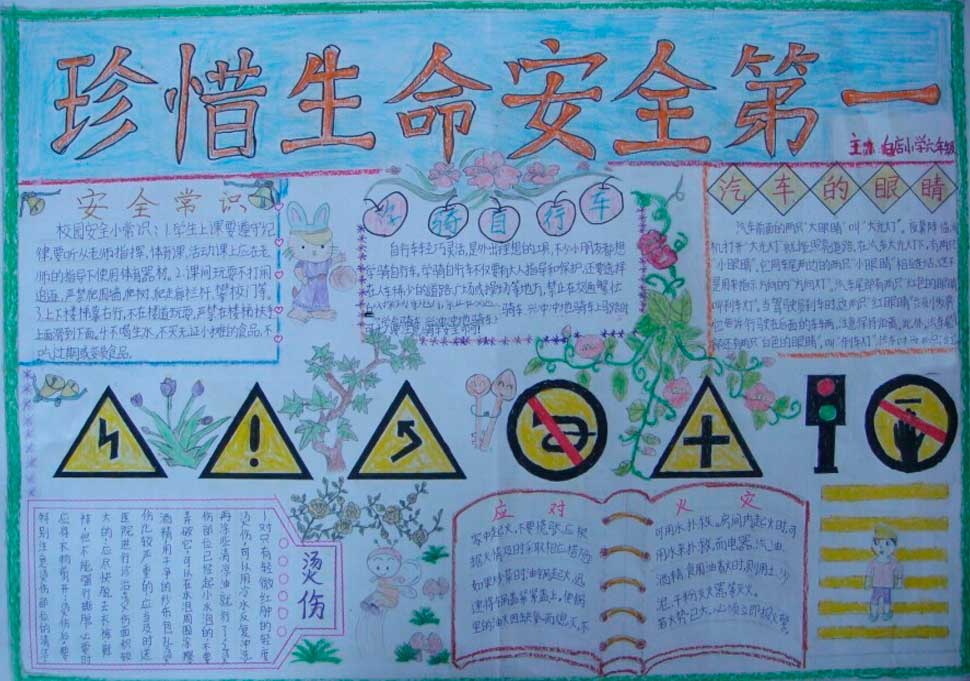 珍惜生命安全第一
主办 白店小学六年级
安全常识
校园安全小常识：1.学生上课要遵守纪
律,要听从老师指挥,体育课,活动课上应在老
师的指导下使用体育器材。2.课间玩耍不打闹
追逐,严禁爬围墙,爬树,爬走廊栏杆,攀校门等。
3.上下楼梯靠右行,不在楼道玩耍,严禁在楼梯扶手
上面滑到下面。4.不喝生水,不买无证小摊的食品,不
吃过期或变质食品。
学骑自行车
自行车轻巧灵活,是外出理想的工具,不少小朋友都想
学骑自行车,学骑自行车不仅要有大人指导和保护,还要选择
在人车稀少的道路,广场或操场等地方,禁止在交通繁忙
汽车的眼睛
汽车前面的两只"大眼睛"叫"大光灯"。夜幕降临,司
机打开"大光灯"就能照亮道路,在汽车大光灯下,有两只
"小眼睛",它用车尾两边的两只"小眼睛"相互连结,这不
是用来指示方向的"方向灯"。汽车尾部有两只"红色的眼睛"
叫"刹车灯"。当驾驶员刹车时,这两只"红眼睛"
烫伤
1.对只有轻微红肿的轻度
烫伤,可以用冷水反复冲洗,
再涂些清凉油就行了。2.烫
伤部位已经起小水泡的,不要
弄破它,可以在水泡周围涂擦
酒精,用干净的纱布包扎。3.烫
伤比较严重的,应当及时送
医院进行诊治。4.烫伤面积较
大的,应尽快脱去衣裤鞋
袜,但不能强行撕脱,必要时
应将衣物剪开;烫伤后,要
特别注意烫伤部位的清洁
应对火灾
家中起火,不要慌张,应根
据火情及时采取相应措施:
如果炒菜时油锅起火,迅
速将锅盖紧紧盖上,使锅
里的油火因缺氧而熄灭,不
可用水扑救。房间内起火时,可
用水来扑救。而电器、汽油、
酒精、食用油着火时,则用土、沙
泥、干粉灭火器等灭火。
若火势已大,必须立即报火警